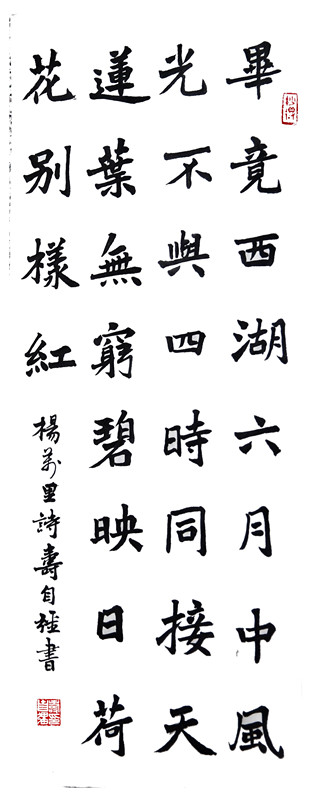 畢竟西湖六月中風
光不與四時同接天
蓮葉無窮碧映日荷
花别樣紅
楊萬里詩壽自書